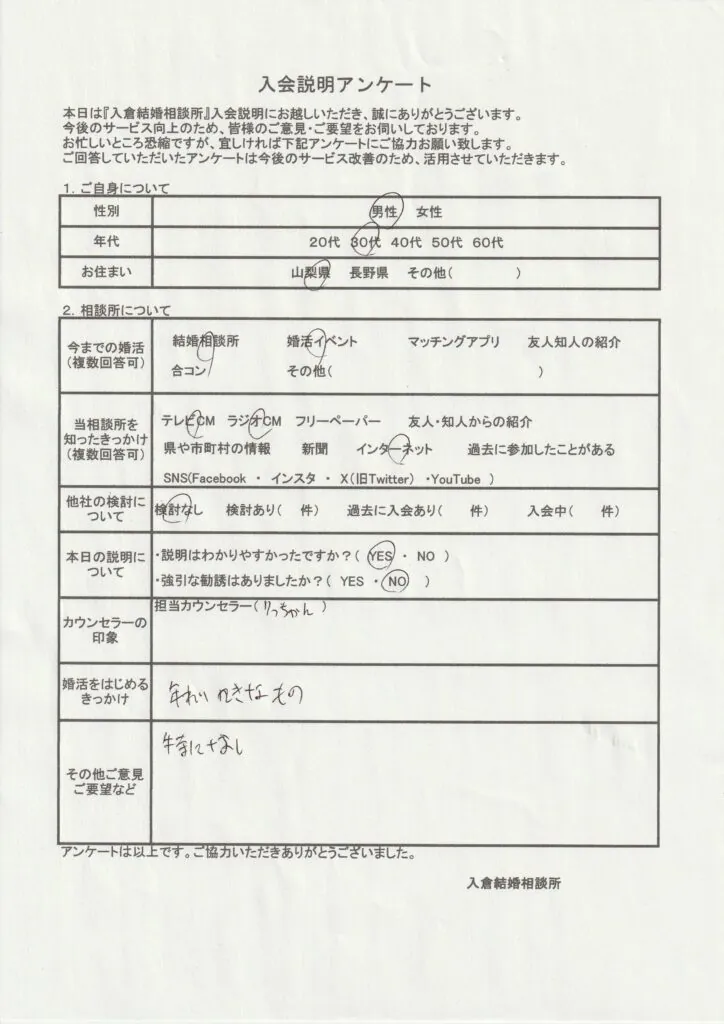 入会説明アンケート
本日は『入倉結婚相談所』入会説明にお越しいただき、誠にありがとうございます。
今後のサービス向上のため、皆様のご意見・ご要望をお伺いしております。
お忙しいところ恐縮ですが、宜しければ下記アンケートにご協力お願い致します。
ご回答していただいたアンケートは今後のサービス改善のため、活用させていただきます。
1. ご自身について
性別 男性 女性
年代 20代 30代 40代 50代 60代
お住まい 山梨県 長野県 その他( )
2. 相談所について
今までの婚活
(複数回答可)
結婚相談所 婚活イベント マッチングアプリ 友人知人の紹介
合コン その他( )
当相談所を
知ったきっかけ
(複数回答可)
テレビCM ラジオCM フリーペーパー 友人・知人からの紹介
県や市町村の情報 新聞 インターネット 過去に参加したことがある
SNS(Facebook ・ インスタ ・ X(旧Twitter) ・YouTube )
他社の検討に
ついて
検討なし 検討あり( 件) 過去に入会あり( 件) 入会中( 件)
本日の説明に
ついて
・説明はわかりやすかったですか?( YES ・ NO )
・強引な勧誘はありましたか?( YES ・ NO )
カウンセラーの
印象
担当カウンセラー( りっちゃん )
婚活をはじめる
きっかけ
年れい的なもの
その他ご意見
ご要望など
特になし
アンケートは以上です。ご協力いただきありがとうございました。
入倉結婚相談所